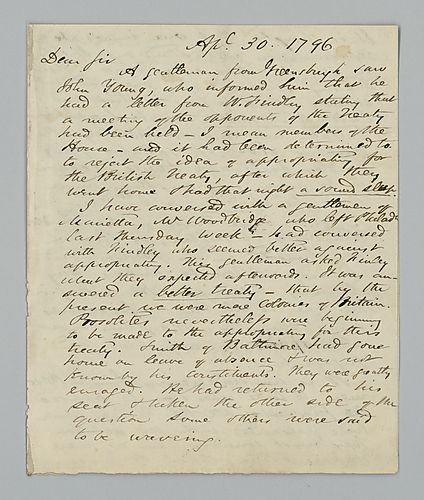 Apl. 30. 1796
Dear Sir
A gentleman from Greensburgh saw
John Young, who informed him that he
had a letter from W. Findley stating that
a meeting of the opponents of the Treaty
had been held – I mean members of the
House – and it had been determined to
to reject the idea of appropriating for
the British Treaty, after which they
went home & had that night a sound sleep.
I have conversed with a gentleman of
Marietta, Mr Woodbridge who left Philada
last Thursday week – had conversed
with Findley who seemed better against
appropriating. This gentleman asked Finley
what they expected afterwards. It was an-
swered a better treaty – that by the
present we were mere Colonies of Britain.
nevertheless were beginning
to be made to the appropriating for this
treaty. Smith of Baltimore had gone
home on leave of absence & was not
known by his constituents. They were greatly
enraged. He had returned to his
seat & taken the other side of the
question some others were said
to be wavering.